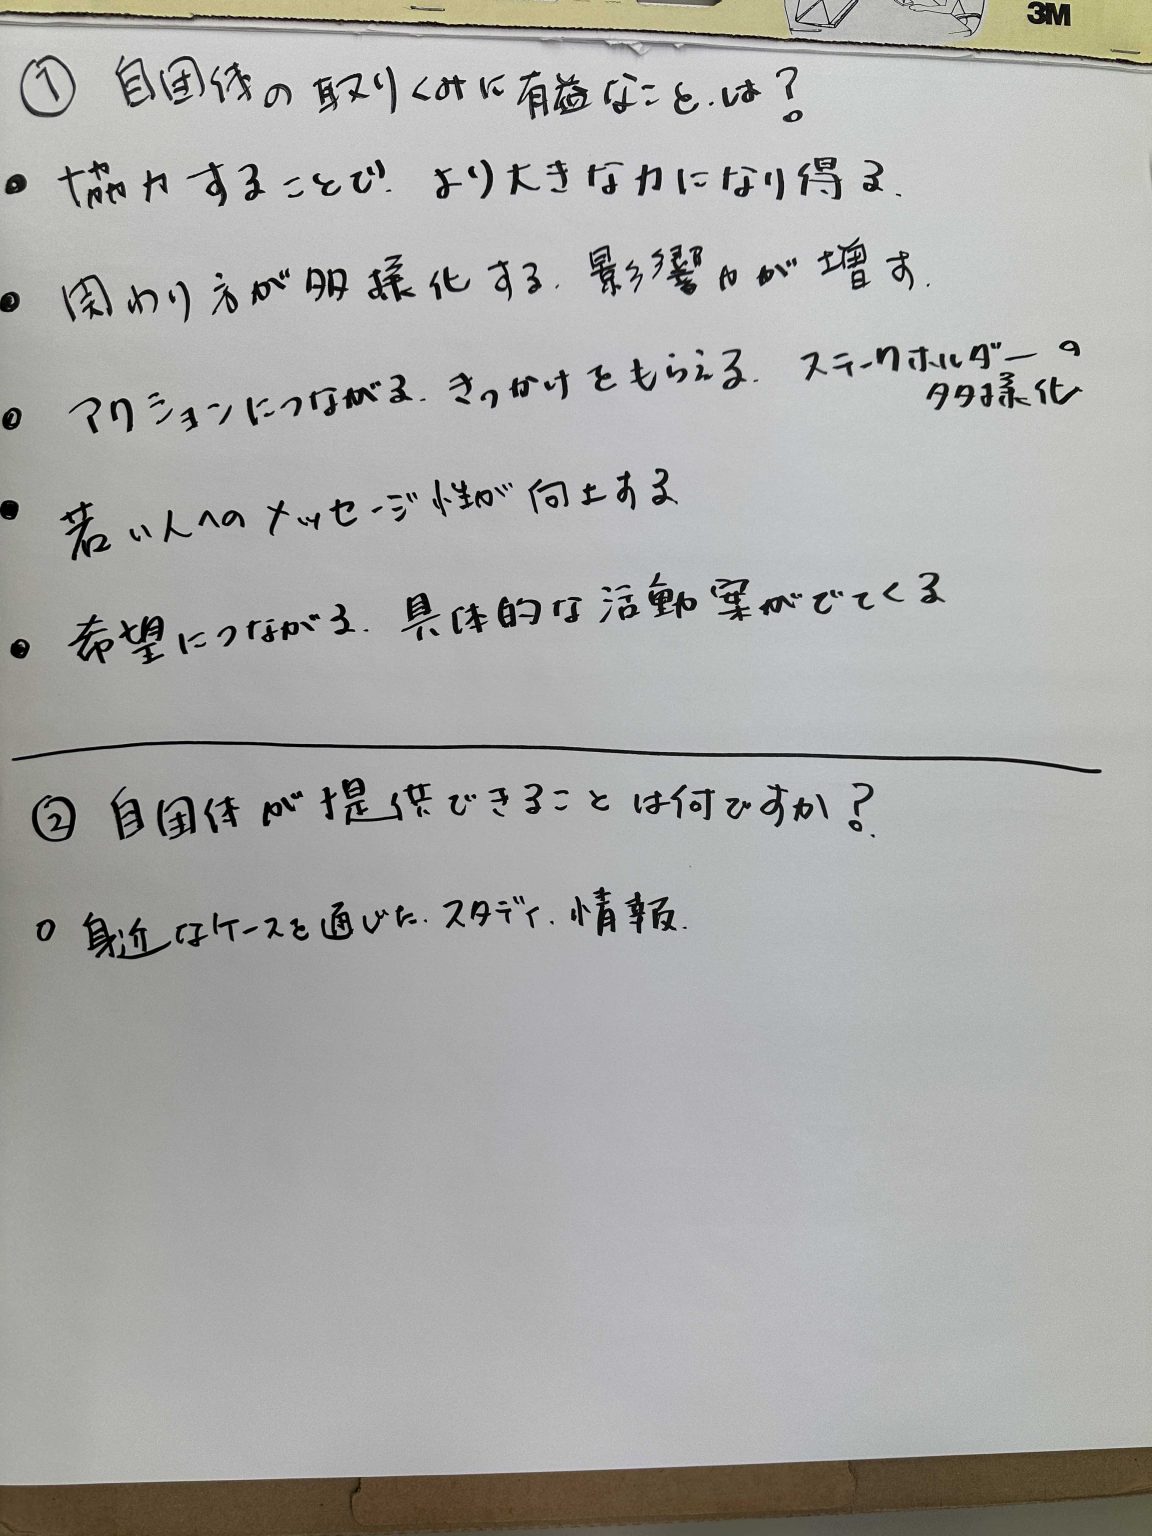 3M
① 自団体の取りくみに有益なこと.は?
● 協力することで. より大きな力になり得る.
● 関わり方が多様化する. 影響力が増す.
● アクションにつながる. きっかけをもらえる. ステークホルダーの
多様化
● 若い人へのメッセージ性が向上する
● 希望につながる. 具体的な活動案がでてくる
② 自団体が提供できることは何ですか?
○ 身近なケースを通じた. スタディ. 情報.